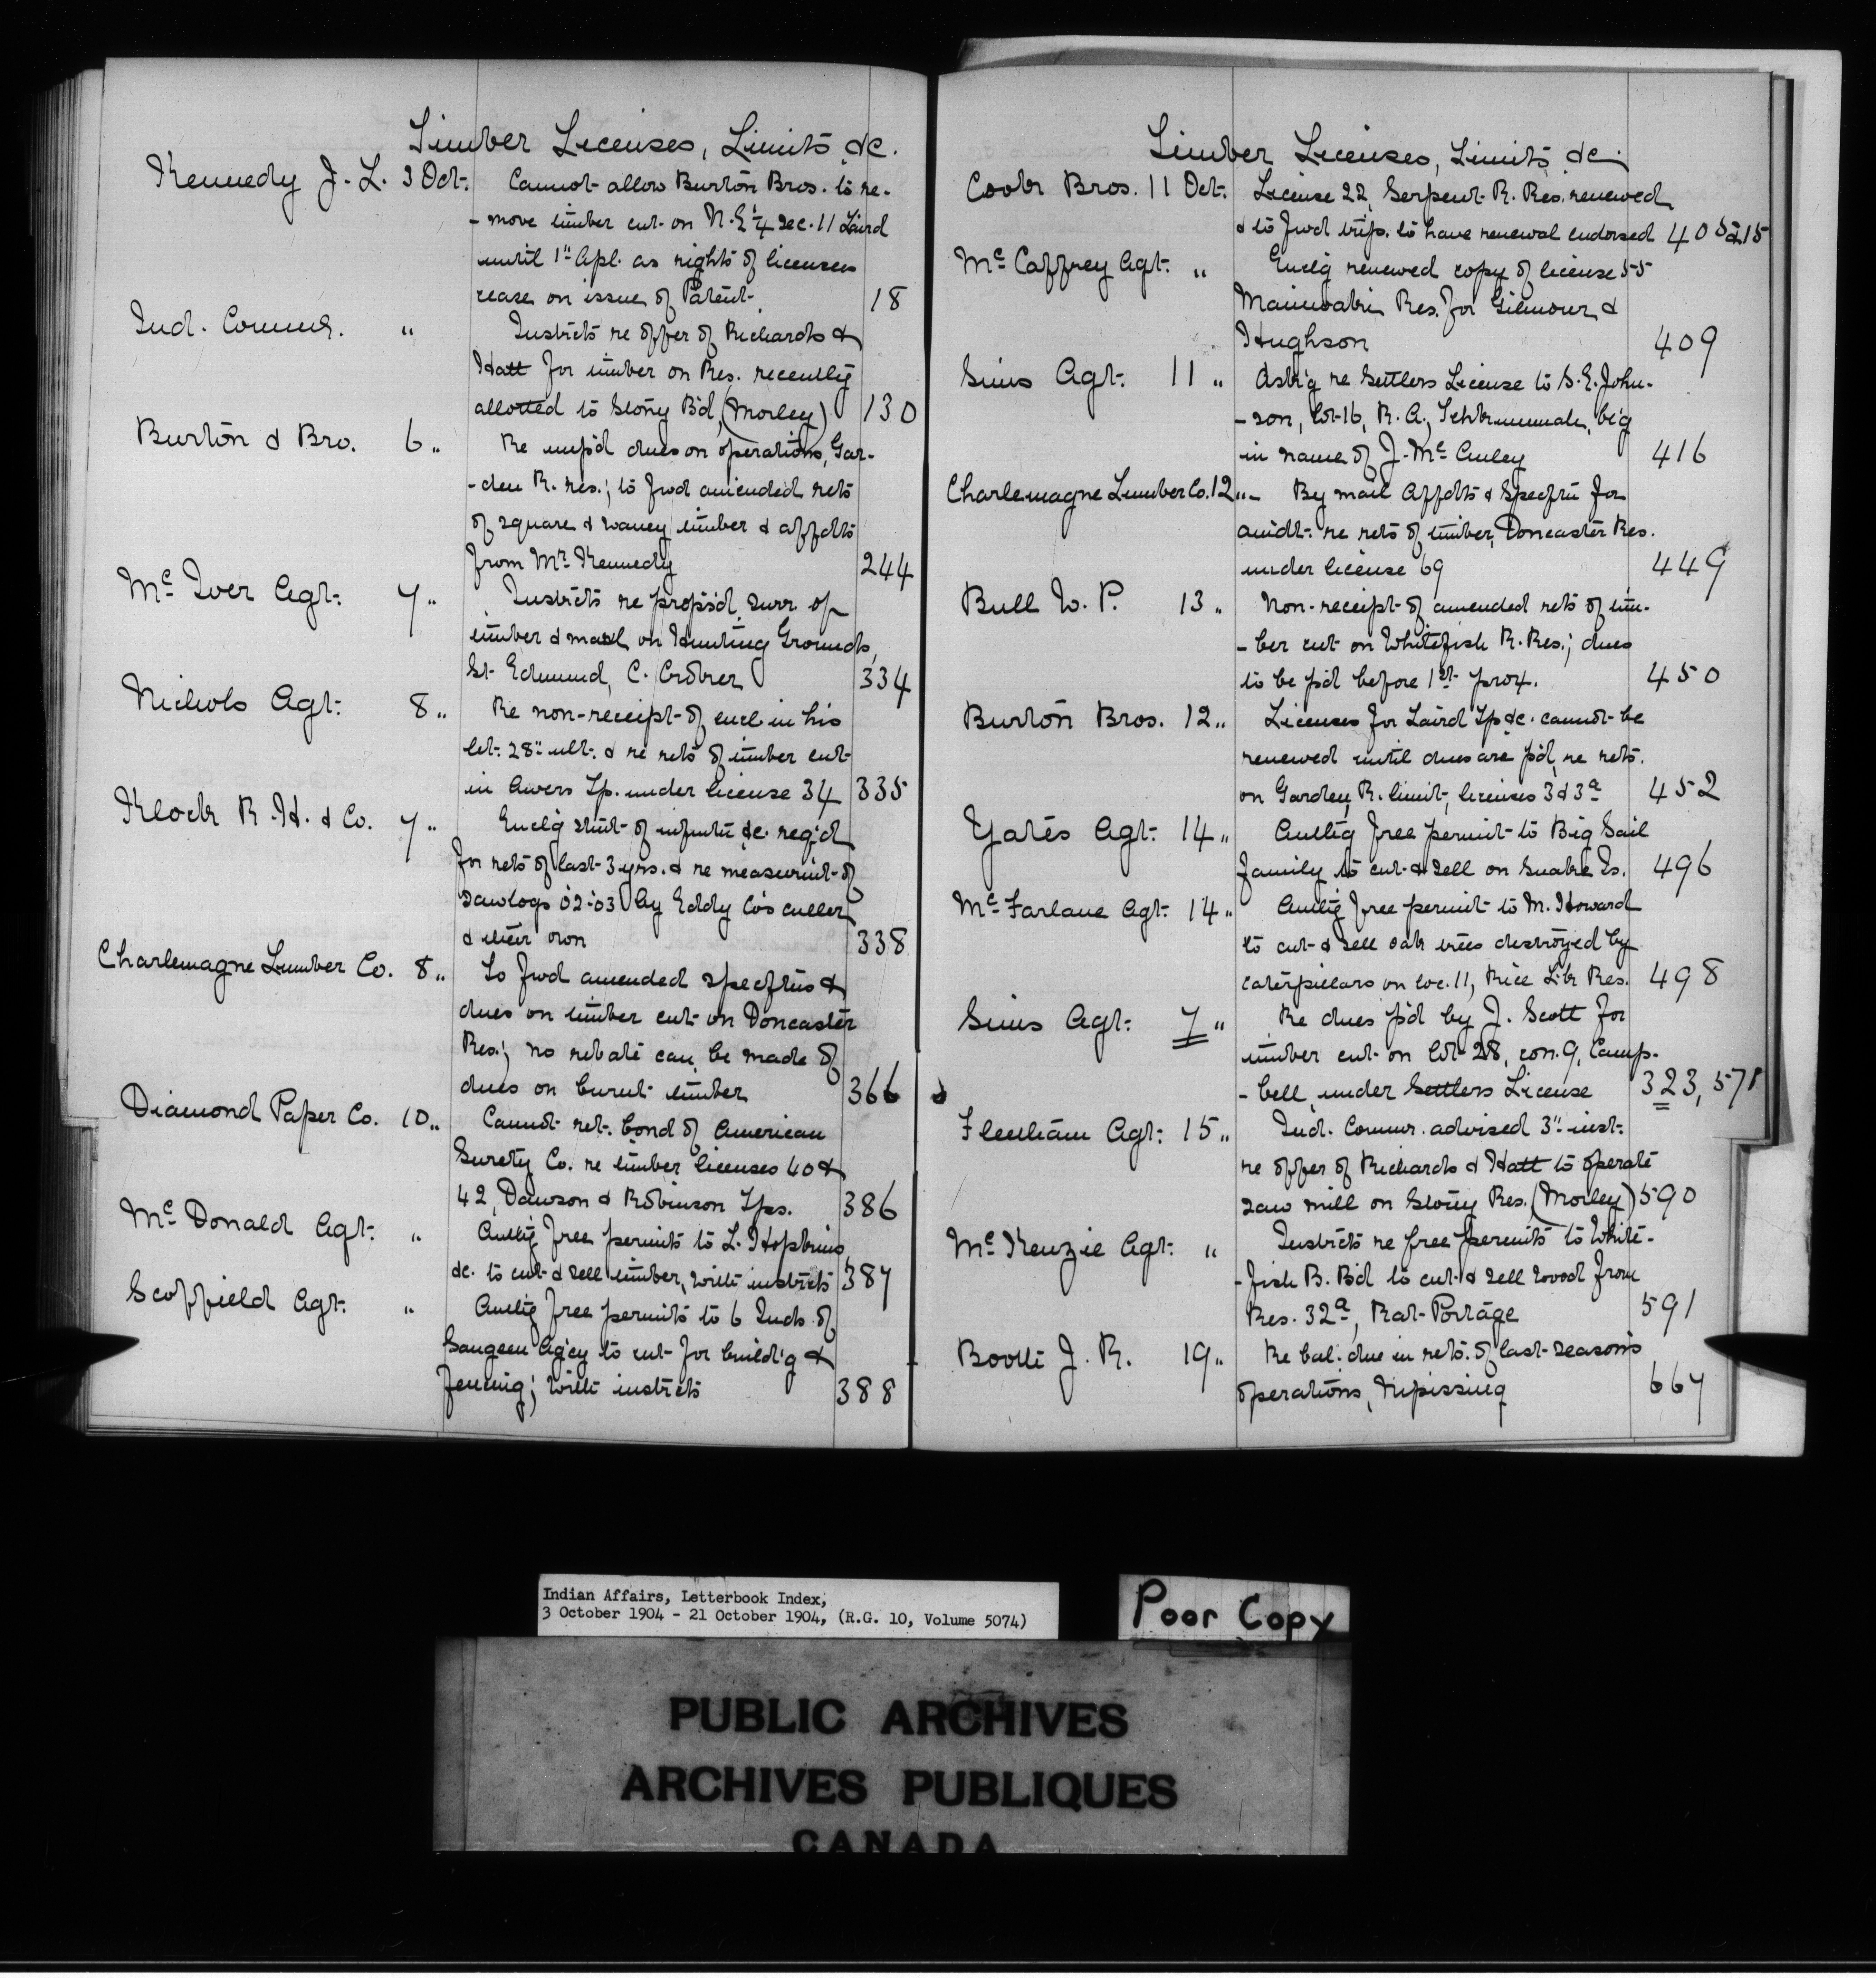 Timber Licenses, Limits &c.
Kennedy J. L. 3 Oct. Cannot allow Burton Bros. to re-
-move timber cut on N.E ¼ sec. 11 Laird
until 1" Apl. as rights of licensees
cease on issue of Patent 18
Ind. Commr. " Instrcts re offer of Richards &
Hatt for timber on Res. recently
allotted to Stony B'd, (Morley) 130
Burton & Bro. 6 " Re unp'd dues on operations, Gar-
-den R. res.; to fwd amended rets
of square & waney timber & affdts
from Mr. Kennedy 244
Mc Iver Agt. 7 " Instrcts re propos'd surr. of
timber & marl on Hunting Grounds,
St. Edmund, C. Croker 334
Nichols Agt. 8 " Re non-receipt of encl. in his
let. 28" ult. & re rets of timber cut
in Awers Tp. under license 34 335
Klock R. H. & Co. 7 " Encl'g stmt of infmtn &c. req'd
for rets of last 3 yrs. & re measurmt of
sawlogs '02-'03 by Eddy Co's culler
& their own 338
Charlemagne Lumber Co. 8 " To fwd amended specftns &
dues on timber cut on Doncaster
Res.; no rebate can be made of
dues on burnt timber 366
Diamond Paper Co. 10 " Cannot ret. bond of American
Surety Co. re timber licenses 40 &
42, Dawson & Robinson Tps. 386
Mc Donald Agt. " Auth'g free permits to L. Hopkins,
&c. to cut & sell timber, with instrcts 387
Scoffield Agt. " Auth'g free permits to 6 Inds. of
Saugeen Ag'cy to cut for build'g &
fencing; with instrcts 388
Timber Licenses, Limits &c.
Cook Bros. 11 Oct. License 22, Serpent R. Res. renewed
& to fwd trip. to have renewal endorsed 405 215
Mc Caffrey Agt. " Encl'g renewed copy of license 55
Maniwaki Res. for Gilmour &
Hughson 409
Sims Agt. 11 " Ask'g re Settlers License to S. E. John-
-son, lot 16, R. A, Tehkummah, be'g
in name of J. Mc Auley 416
Charlemagne Lumber Co. 12 " By mail Affdts & Specftn for
amdt. re rets of timber, Doncaster Res.
under license 69 449
Bull W. P. 13 " Non-receipt of amended rets of tim-
-ber cut on Whitefish R. Res.; dues
to be p'd before 1st prox. 450
Burton Bros. 12 " Licenses for Laird Tp &c. cannot be
renewed until dues are p'd, re rets.
on Garden R. limit, licenses 3 & 3a 452
Yates Agt. 14 " Auth'g free permit to Big Sail
family to cut & sell on Snake Is. 496
Mc Farlane Agt. 14 " Auth'g free permit to M. Howard
to cut & sell oak trees destroyed by
caterpillars on loc. 11, Rice Lk Res. 498
Sims Agt. 7 " Re dues p'd by J. Scott for
timber cut on lot 28, con. 9, Camp-
-bell, under Settlers License 323, 571
Fleetham Agt. 15 " Ind. Commr. advised 3" inst.
re offer of Richards & Hatt to operate
saw mill on Stony Res. (Morley) 590
Mc Kenzie Agt. " Instrcts re free permits to White-
-fish B. B'd to cut & sell wood from
Res. 32a, Rat Portage 591
Booth J. R. 19 " Re bal. due in rets. of last season's
operations, Nipissing 667
Indian Affairs, Letterbook Index,
3 October 1904 - 21 October 1904, (R.G. 10, Volume 5074)
Poor Copy
PUBLIC ARCHIVES
ARCHIVES PUBLIQUES
CANADA